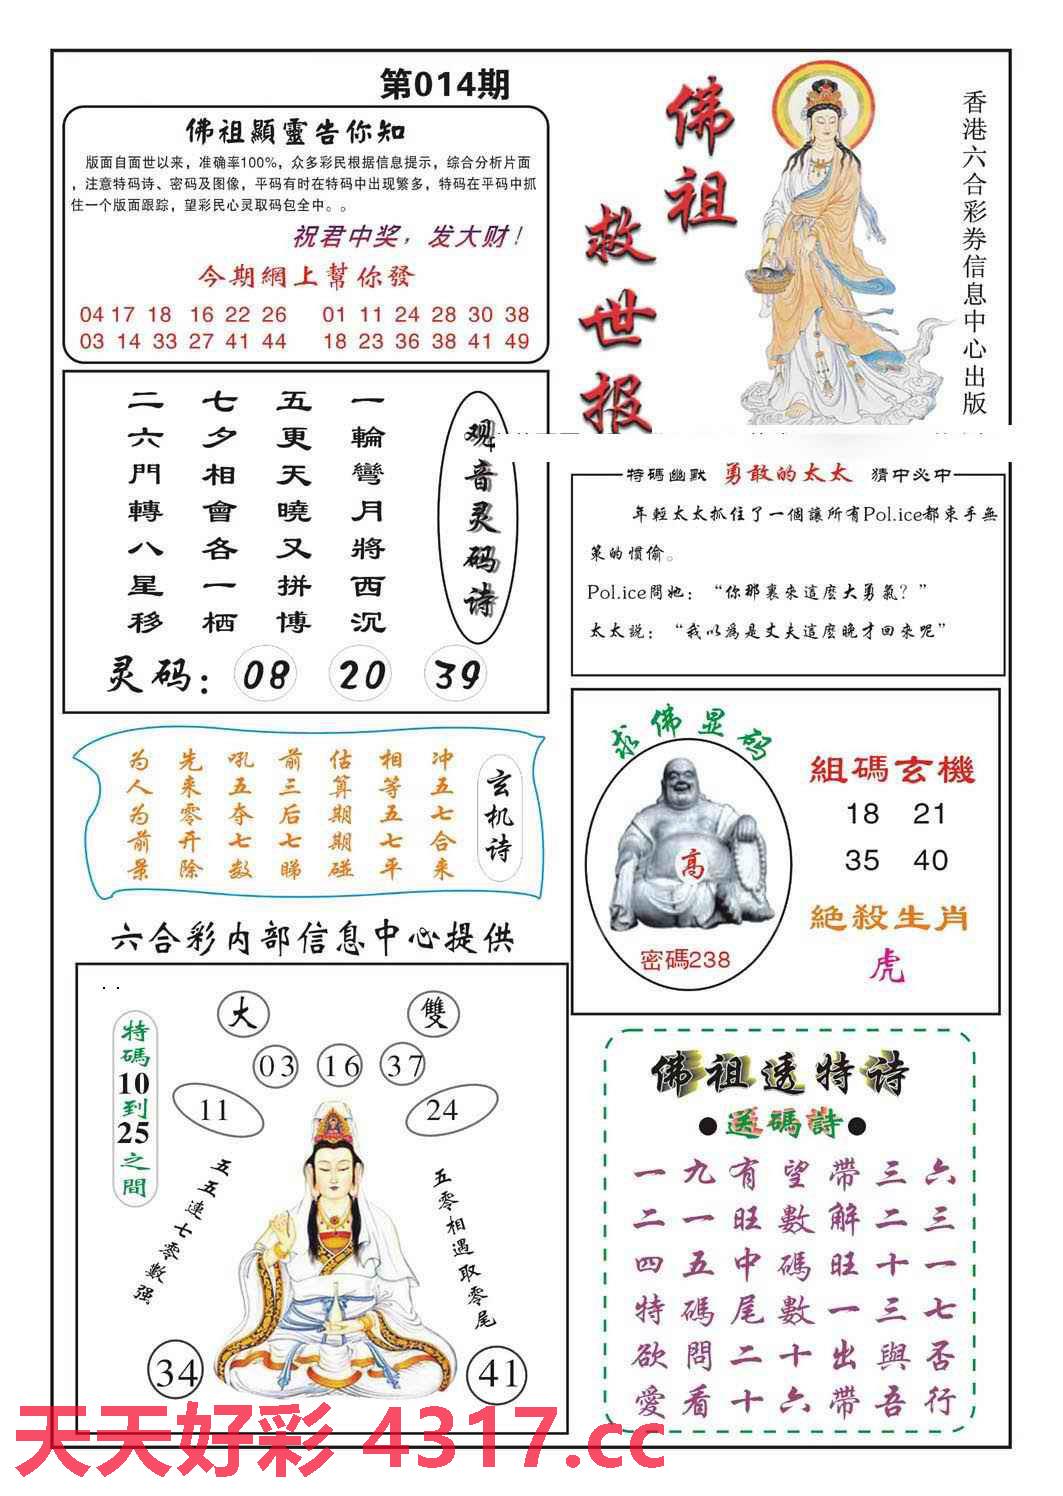 第014期
佛祖顯靈告你知
版面自面世以来，准确率100%，众多彩民根据信息提示，综合分析片面
，注意特码诗、密码及图像，平码有时在特码中出现繁多，特码在平码中抓
住一个版面跟踪，望彩民心灵取码包全中。。
祝君中奖，发大财！
今期網上幫你發
04 17 18 16 22 26 01 11 24 28 30 38
03 14 33 27 41 44 18 23 36 38 41 49
佛祖
救世报
香港六合彩券信息中心出版
观音灵码诗
一輪彎月將西沉
五更天曉又拼博
七夕相會各一栖
二六門轉八星移
灵码：08 20 39
特碼幽默 勇敢的太太 猜中必中
年輕太太抓住了一個讓所有Pol.ice都束手無
策的慣偷。
Pol.ice問她：“你那裏來這麼大勇氣？”
太太説：“我以爲是丈夫這麼晚才回來呢”
玄机诗
冲五七合来
相等五七平
估算期期碰
前三后七睇
吼五夺七数
先来零开除
为人为前景
求佛显码
高
密碼238
組碼玄機
18 21
35 40
絕殺生肖
虎
六合彩内部信息中心提供
大 雙
03 16 37
11 24
特碼10到25之間
五五連七零數强
五零相遇取零尾
34 41
佛祖透特诗
●送碼詩●
一九有望帶三六
二一旺數解二三
四五中碼旺十一
特碼尾數一三七
欲問二十出與否
愛看十六帶吾行
天天好彩 4317.cc